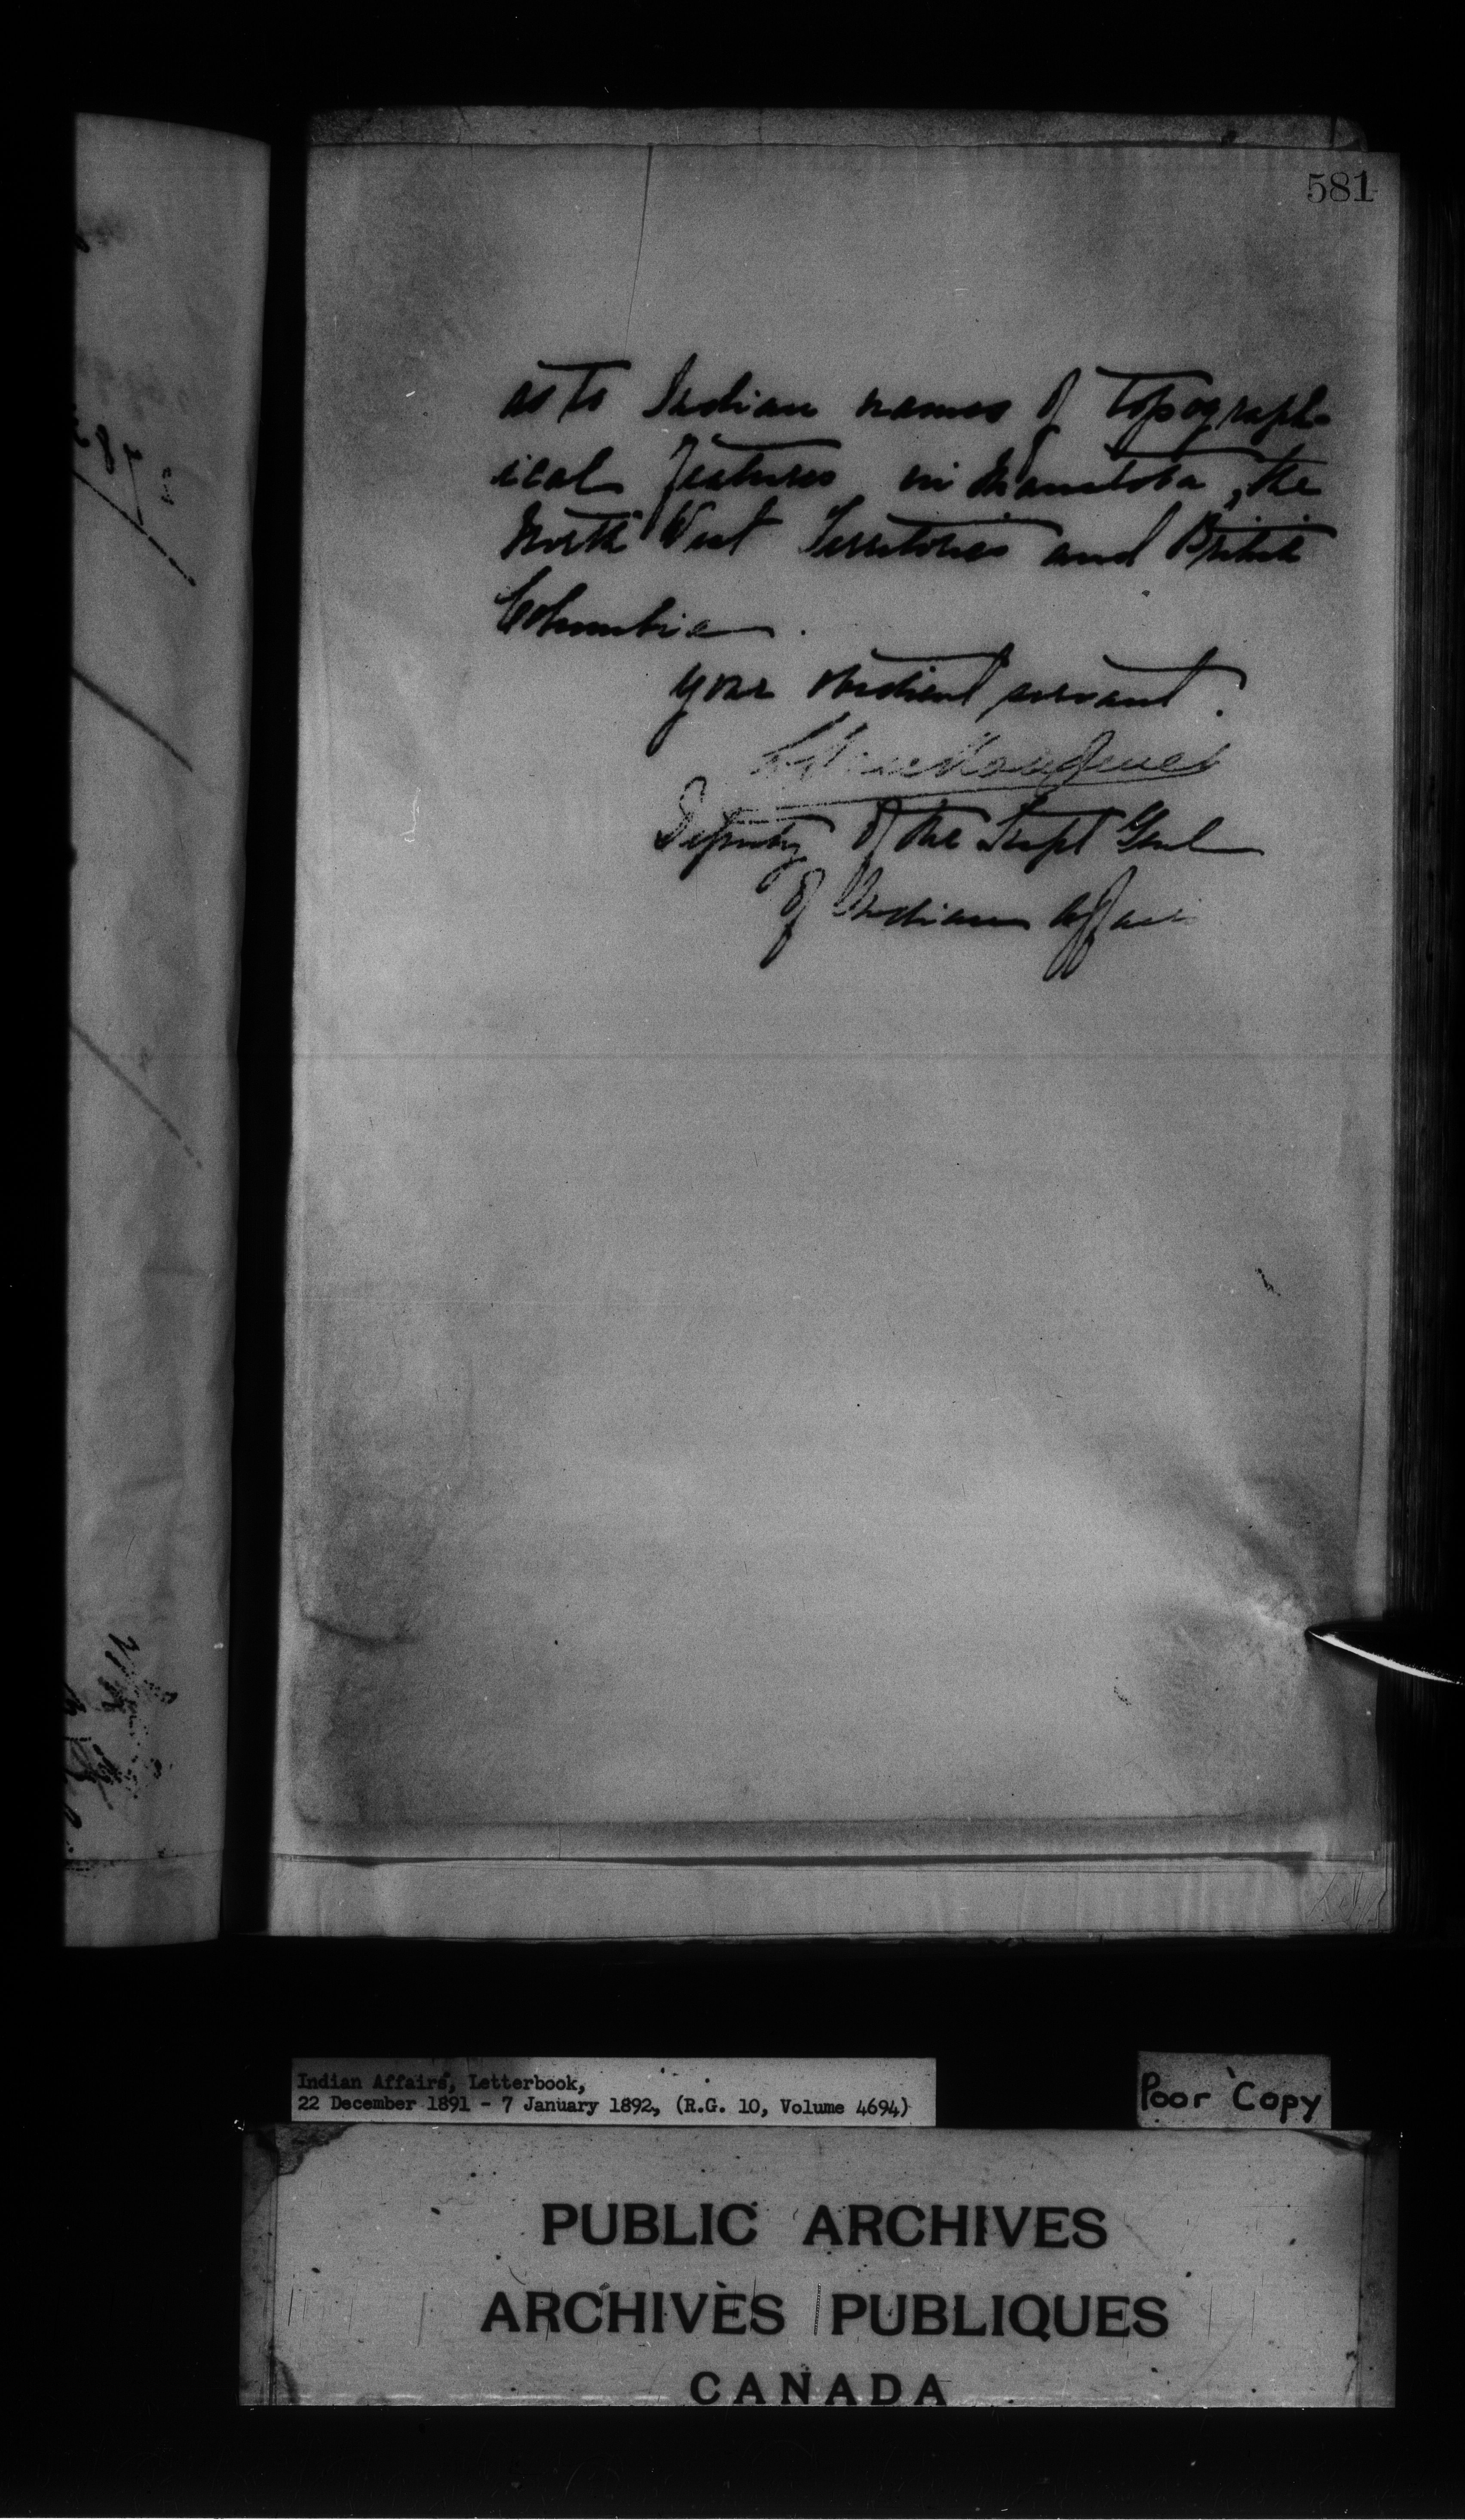 581
as to Indian names of topograph-
ical features in Manitoba, the
North West Territories and British
Columbia.
your obedient servant.
Deputy of the Supt Genl
of Indian Affai
Indian Affairs, Letterbook,
22 December 1891 - 7 January 1892, (R.G. 10, Volume 4694)
Poor Copy
PUBLIC ARCHIVES
ARCHIVES PUBLIQUES
CANADA